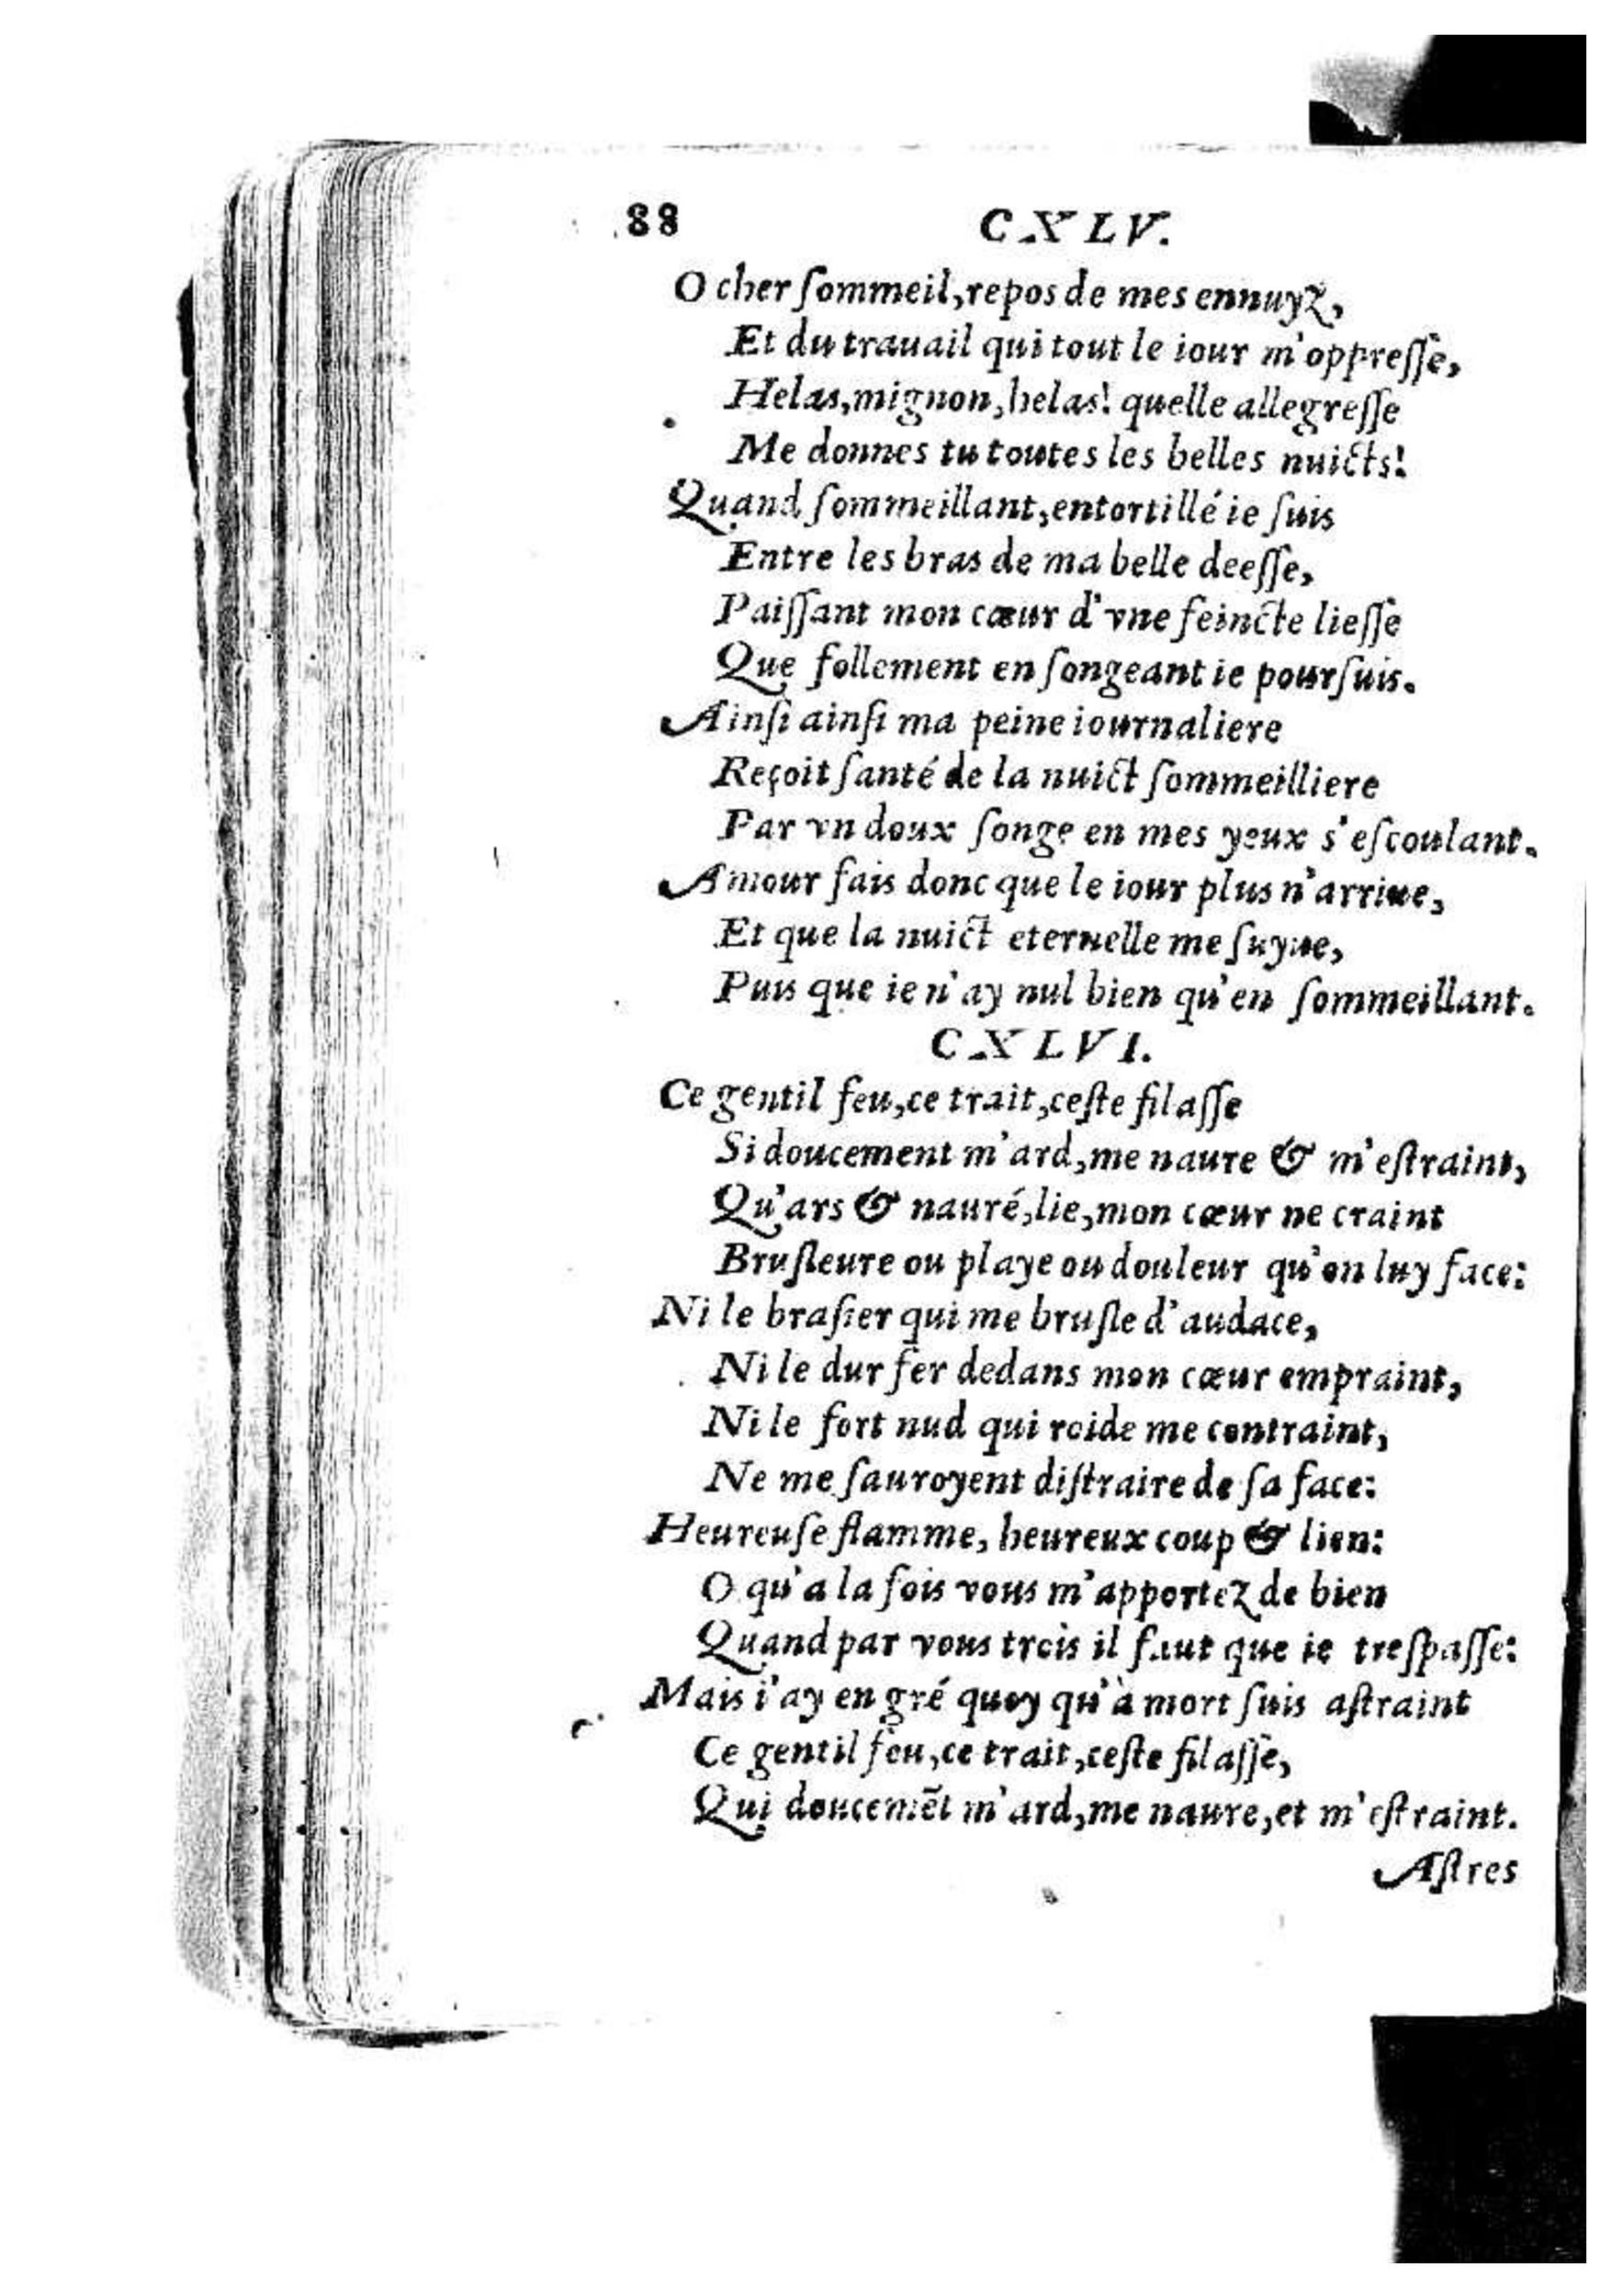 88 CXLV.
O cher ſommeil, repos de mes ennuyz,
Et du trauail qui tout le iour m'oppreſſe,
Helas, mignon, helas! quelle allegreſſe
Me donnes tu toutes les belles nuicts!
Quand ſommeillant, entortillé ie ſuis
Entre les bras de ma belle deeſſe,
Paiſſant mon cœur d'vne feincte lieſſe
Que follement en ſongeant ie pourſuis.
Ainſi ainſi ma peine iournaliere
Reçoit ſanté de la nuict ſommeilliere
Par vn doux ſonge en mes yeux s'eſcoulant.
Amour fais donc que le iour plus n'arriue,
Et que la nuict eternelle me ſuyue,
Puis que ie n'ay nul bien qu'en ſommeillant.
CXLVI.
Ce gentil feu, ce trait, ceſte filaſſe
Si doucement m'ard, me naure & m'eſtraint,
Qu'ars & nauré, lie, mon cœur ne craint
Bruſleure ou playe ou douleur qu'on luy face:
Ni le braſier qui me bruſle d'audace,
Ni le dur fer dedans mon cœur empraint,
Ni le fort nud qui roide me contraint,
Ne me ſauroyent diſtraire de ſa face:
Heureuſe flamme, heureux coup & lien:
O qu'a la fois vous m'apportez de bien
Quand par vous trois il faut que ie treſpaſſe:
Mais i'ay en gré quoy qu'à mort ſuis aſtraint
Ce gentil feu, ce trait, ceſte filaſſe,
Qui doucemẽt m'ard, me naure, et m'eſtraint.
Aſtres